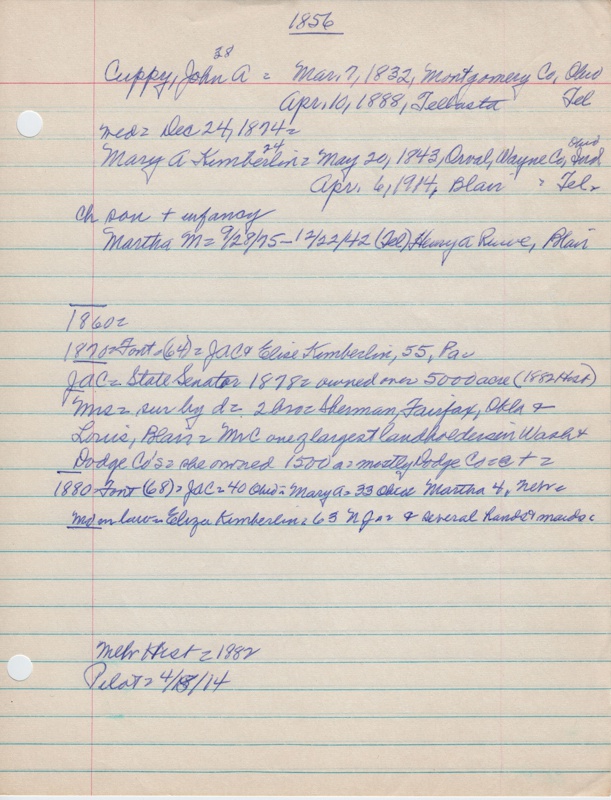 1856
28
Cuppy, John A = Mar. 7, 1832, Montgomery Co, Ohio
Apr. 10, 1888, Telbasta Tel
med = Dec 24, 1874 =
24 Ohio
Mary A Kimberlin = May 20, 1843, Orval, Wayne Co, Ind
Apr. 6, 1914, Blair = Tel.
ch son + infancy
Martha M = 9/28/75 - 12/22/42 (Tel) Henry A Ruwe, Blair
1860 =
1870 = Font = (64) = JAC & Elise Kimberlin, 55, Pa =
JAC = State Senator 1878 = owned over 5000 acre (1882 Hist)
Mrs = sur by d = 2 bro = Sherman, Fairfax, Okla &
Louis, Blair = Mrs C one of largest landholders in Wash &
Dodge Co's = she owned 1500 a = mostly Dodge Co = et =
1880 Font (68) = JAC = 40 Ohio = Mary A = 33 Ohio Martha 4, Nebr =
Mo in law = Eliza Kimberlin = 63 N J = & several hands & maids =
Nebr Hist = 1882
Pilot = 4/8/14